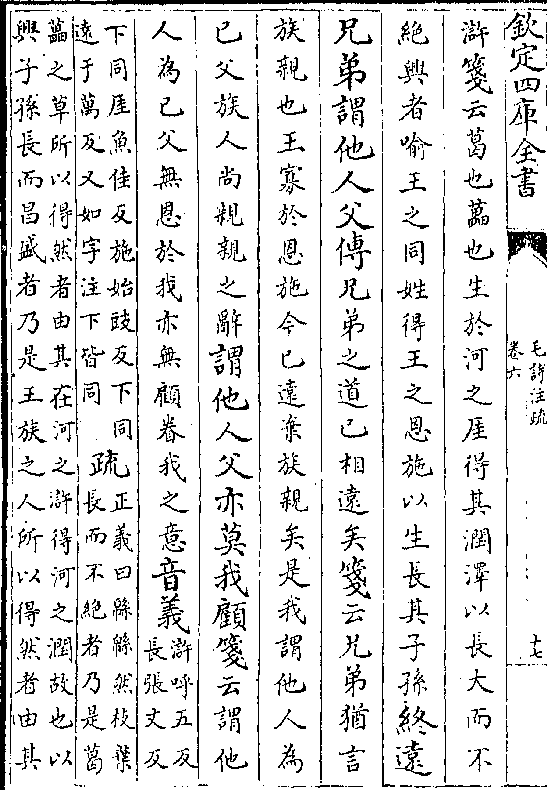 欽定四庫全書
毛詩注疏
卷六
十七
滸箋云葛也藟也生於河之厓得其潤澤以長大而不
絶興者喻王之同姓得王之恩施以生長其子孫終遠
兄弟謂他人父傳兄弟之道已相遠矣箋云兄弟猶言
族親也王寡於恩施今已遠棄族親矣是我謂他人為
已父族人尚親親之辭謂他人父亦莫我顧箋云謂他
人為已父無恩於我亦無顧眷我之意音義滸呼五反
長張丈反
下同厓魚佳反施始豉反下同
遠于萬反又如字注下皆同
疏正義曰緜緜然枝葉
長而不絶者乃是葛
藟之草所以得然者由其在河之滸得河之潤故也以
興子孫長而昌盛者乃是王族之人所以得然者由其